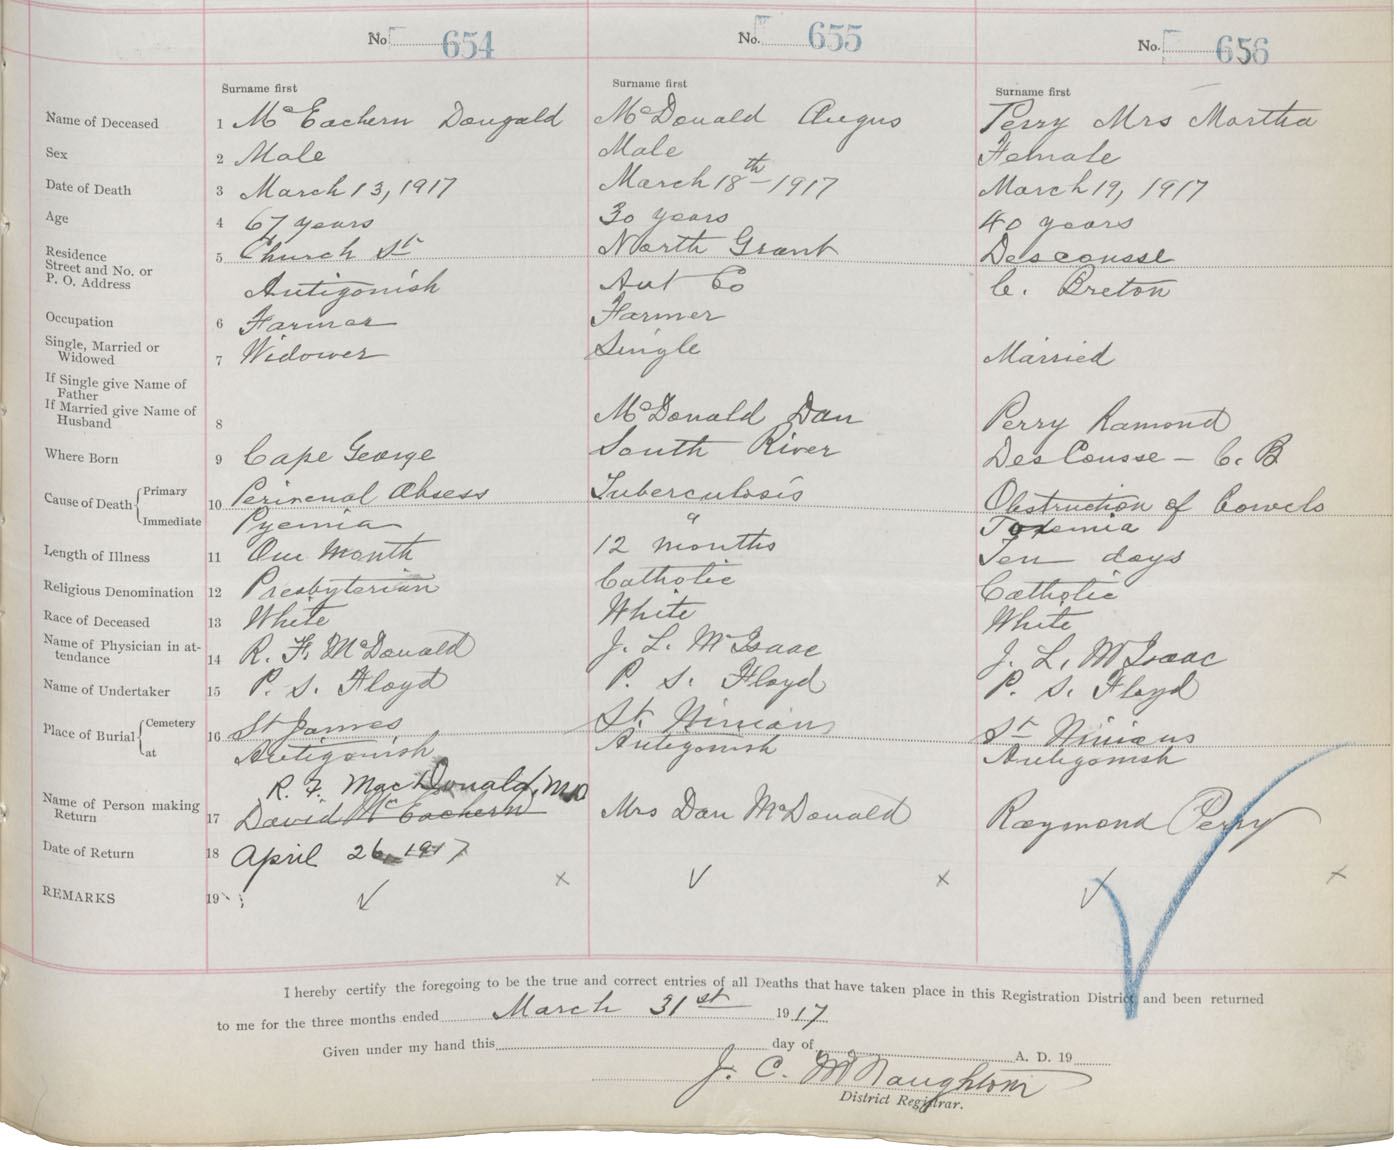 No. 654 No. 655 No. 656
Surname first Surname first Surname first
Name of Deceased 1 McEachern Dougald McDonald Angus Perry Mrs Martha
Sex 2 Male Male Female
Date of Death 3 March 13, 1917 March 18th - 1917 March 19, 1917
Age 4 67 years 30 years 40 years
Residence
Street and No. or 5 Church St North Grant Descousse
P. O. Address Antigonish Ant Co C. Breton
Occupation 6 Farmer Farmer
Single, Married or
Widowed 7 Widower Single Married
If Single give Name of
Father
If Married give Name of
Husband 8 McDonald Dan Perry Ramond
Where Born 9 Cape George South River DesCousse - C. B
Cause of Death Primary 10 Perirenal Absess Tuberculosis Obstruction of bowels
Immediate Pyemia " Toxemia
Length of Illness 11 One Month 12 months Ten days
Religious Denomination 12 Presbyterian Catholic Catholic
Race of Deceased 13 White White White
Name of Physician in at-
tendance 14 R. F. McDonald J. L. McIsaac J. L. McIsaac
Name of Undertaker 15 P. S. Floyd P. S. Floyd P. S. Floyd
Place of Burial Cemetery 16 St James St. Ninians St Ninians
at Antigonish Antigonish Antigonish
R. F. MacDonald, MD
Name of Person making
Return 17 David McEachern Mrs Dan McDonald Raymond Perry
Date of Return 18 April 26, 1917
REMARKS 19
I hereby certify the foregoing to be the true and correct entries of all Deaths that have taken place in this Registration District and been returned
to me for the three months ended March 31st 1917
Given under my hand this day of A. D. 19
J. C. McNaughton
District Registrar.